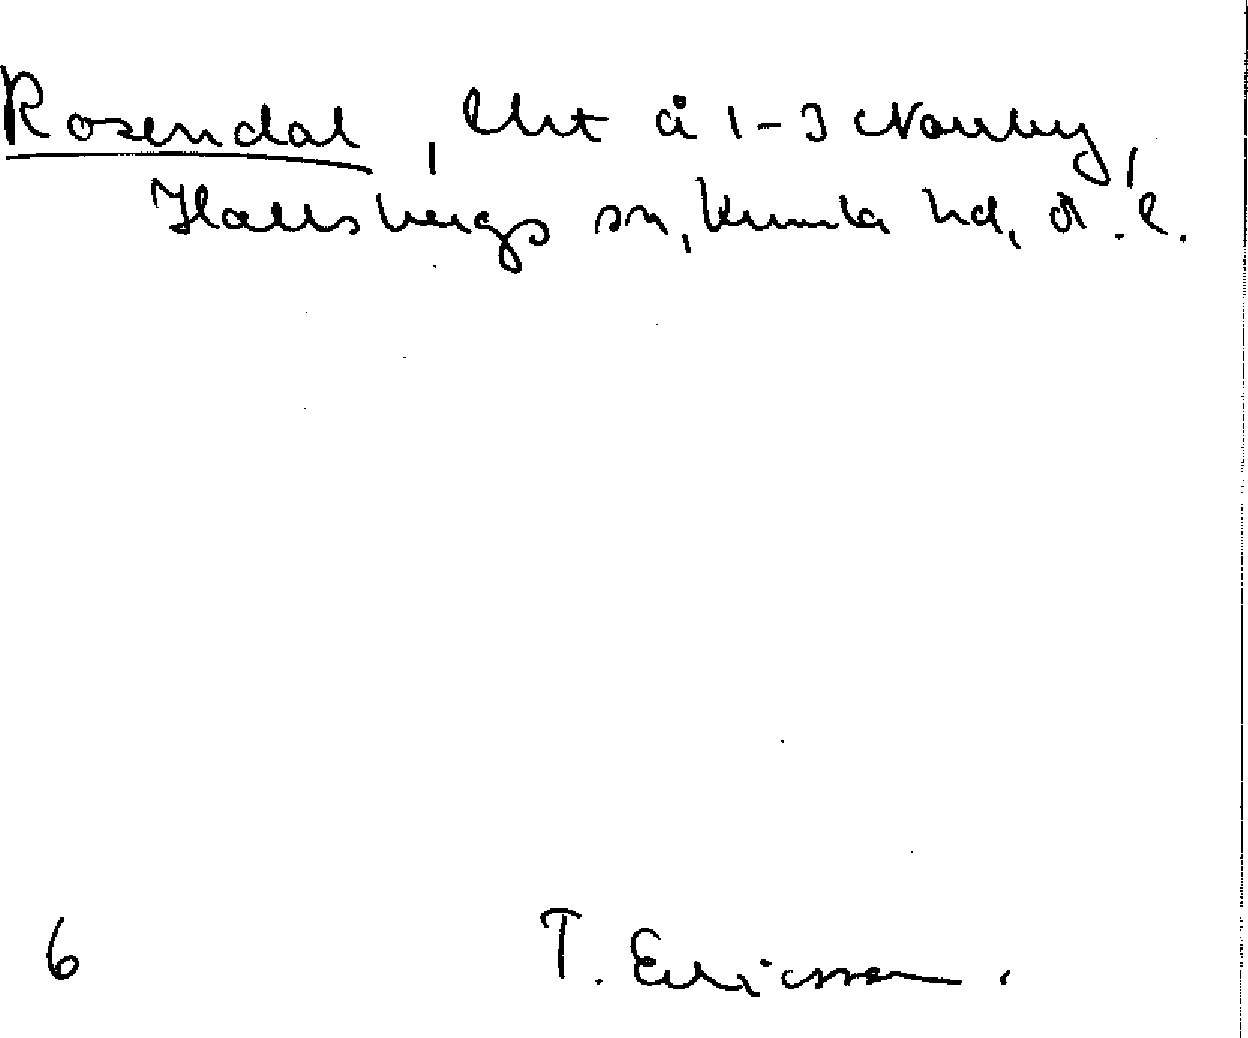 Rosendal, lht å 1-3 Norrby,
Hallsbergs sn, Kumla hd, Ö.l.
6 T. Ericsson.